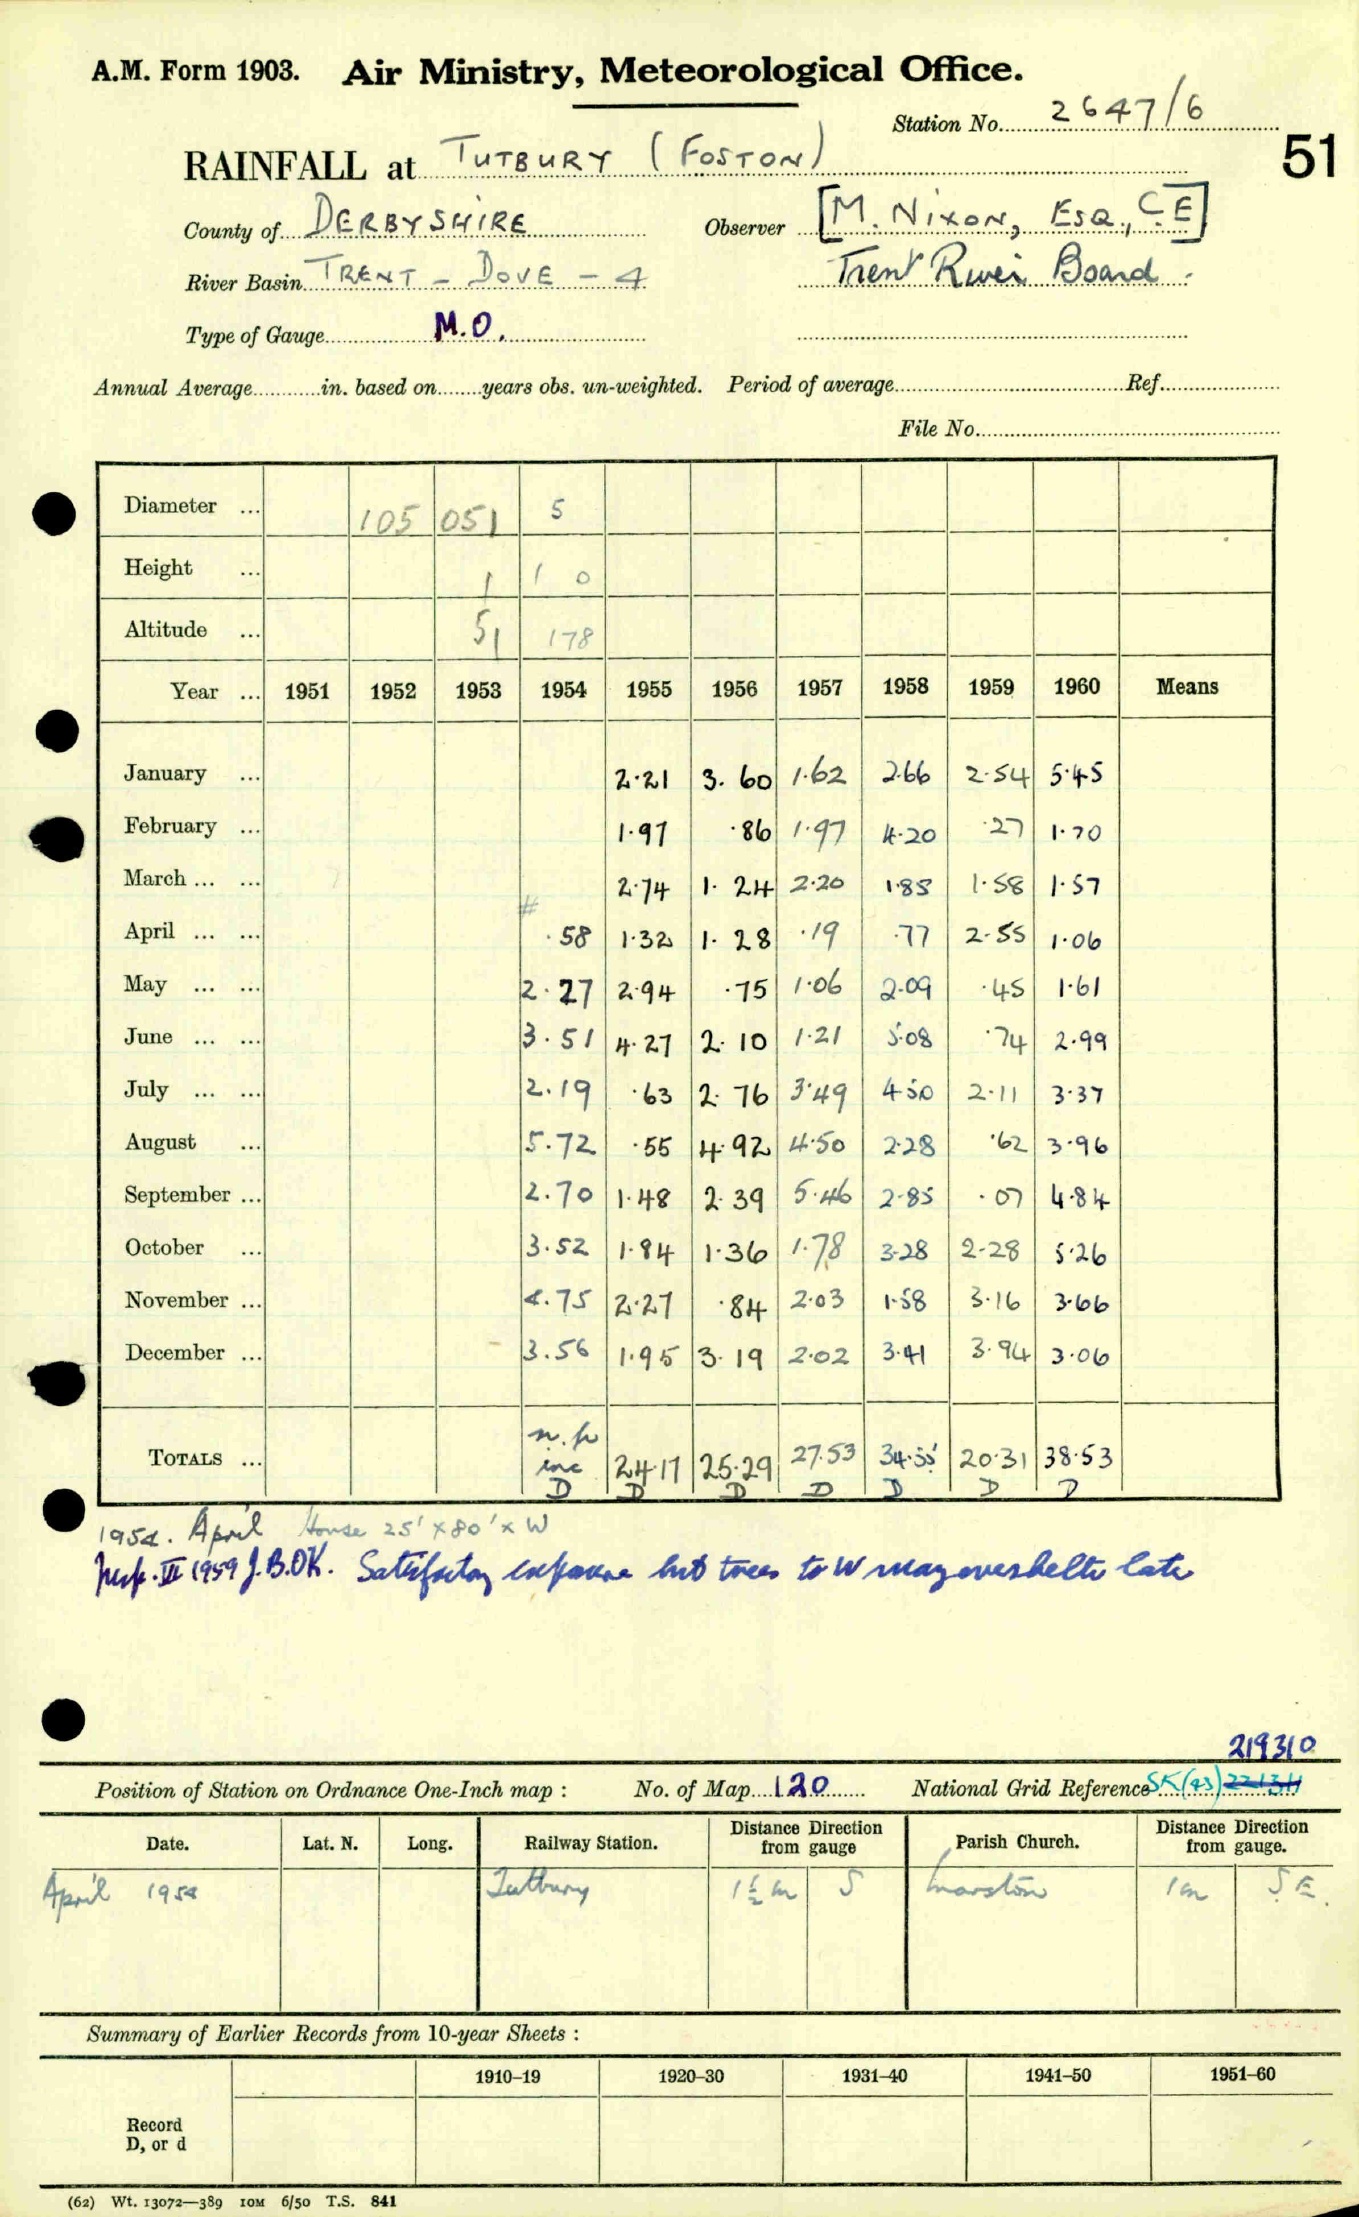 A.M. Form 1903. Air Ministry, Meteorological Office.
Station No. 2647/6
51
RAINFALL at TUTBURY (FOSTON)
County of DERBYSHIRE Observer [M. NIXON, ESQ., C.E]
River Basin TRENT - DOVE - 4 Trent River Board.
Type of Gauge M.O.
Annual Average in. based on years obs. un-weighted. Period of average Ref.
File No.
Diameter ... 105 051 5
Height ... 1 1 0
Altitude ... 51 178
Year ... 1951 1952 1953 1954 1955 1956 1957 1958 1959 1960 Means
January ... 2.21 3.60 1.62 2.66 2.54 5.45
February ... 1.97 .86 1.97 4.20 .27 1.70
March ... ... 2.74 1.24 2.20 1.85 1.58 1.57
#
April ... ... .58 1.32 1.28 .19 .77 2.55 1.06
May ... ... 2.27 2.94 .75 1.06 2.09 .45 1.61
June ... ... 3.51 4.27 2.10 1.21 5.08 .74 2.99
July ... ... 2.19 .63 2.76 3.49 4.50 2.11 3.37
August ... 5.72 .55 4.92 4.50 2.28 .62 3.96
September ... 2.70 1.48 2.39 5.46 2.85 .07 4.84
October ... 3.52 1.84 1.36 1.78 3.28 2.28 5.26
November ... 4.75 2.27 .84 2.03 1.58 3.16 3.66
December ... 3.56 1.95 3.19 2.02 3.41 3.94 3.06
n.p
TOTALS ... inc 24.17 25.29 27.53 34.55 20.31 38.53
D D D D D D D
1954. April House 25' x 80' x W
Insp. VI 1959 J.B. OK. Satisfactory exposure but trees to W may overshelter later
219310
Position of Station on Ordnance One-Inch map : No. of Map 120 National Grid Reference SK(43) 221311
Date. Lat. N. Long. Railway Station. Distance Direction from gauge Parish Church. Distance Direction from gauge.
April 1954 Tutbury 1½m S Marston 1m S.E.
Summary of Earlier Records from 10-year Sheets :
1910–19 1920–30 1931–40 1941–50 1951–60
Record
D, or d
(62) Wt. 13072—389 10M 6/50 T.S. 841